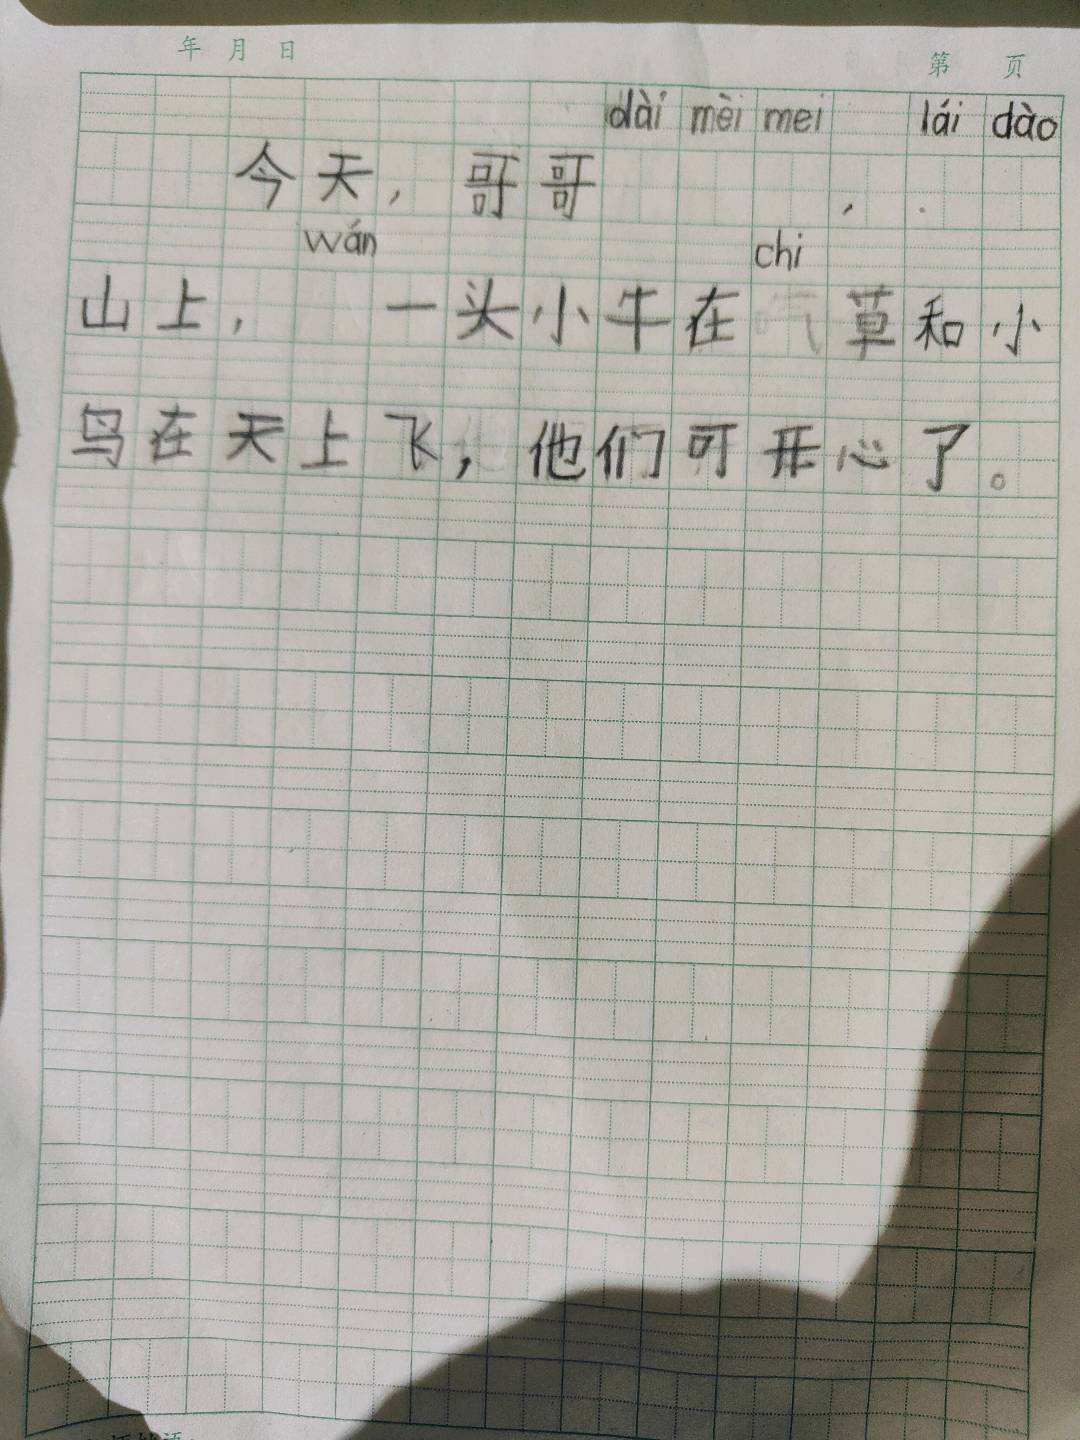 年 月 日 第 页
dài mèi mei lái dào
今天，哥哥 ，
wán chi
山上， 一头小牛在 草和小
鸟在天上飞，他们可开心了。